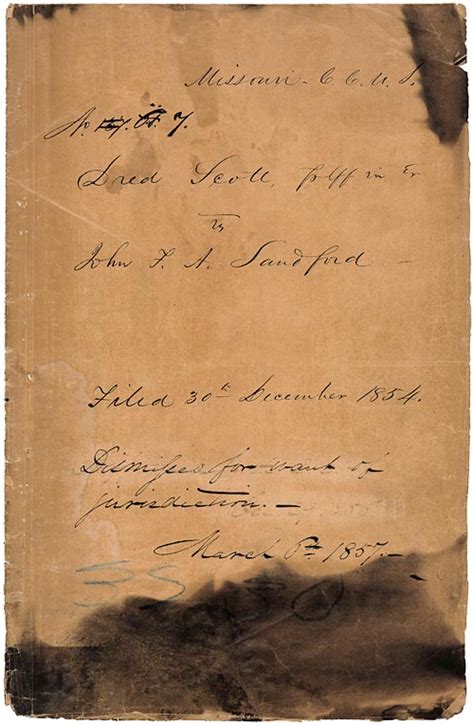 Missouri – C. C. U. S.
No 7.
Dred Scott, Plff in Er
vs
John F. A. Sandford –
Filed 30th December 1854.
Dismissed for want of
jurisdiction. –
March 6th 1857. –